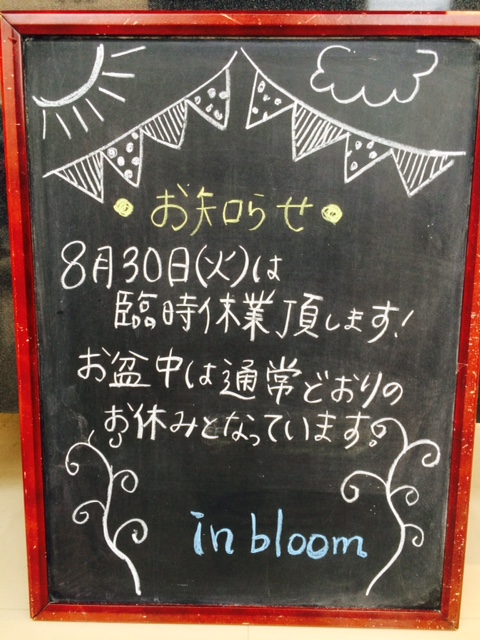 • お知らせ •
8月30日(火)は
臨時休業頂します!
お盆中は通常どおりの
お休みとなっています。
in bloom